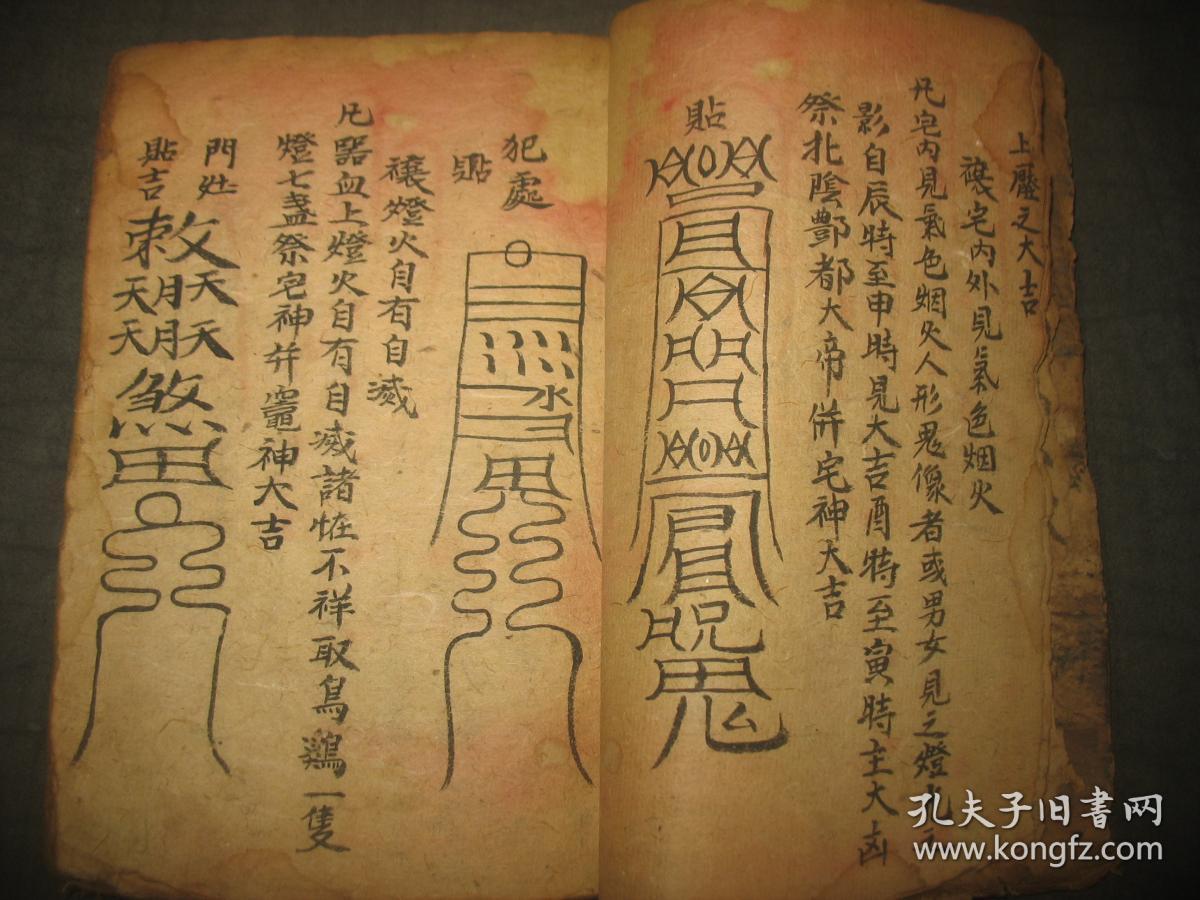 上壓之大吉
禳宅內外見氣色烟火
凡宅內見氣色烟火人形鬼像者或男女見之燈光之
影自辰時至申時見大吉酉時至寅時主大凶
祭北陰酆都大帝併宅神大吉
貼
犯處
貼
禳燈火自有自滅
凡 血上燈火自有自滅諸怪不祥取烏鷄一隻
燈七盞祭宅神并竈神大吉
門灶
貼吉
敕
孔夫子旧书网
www.kongfz.com